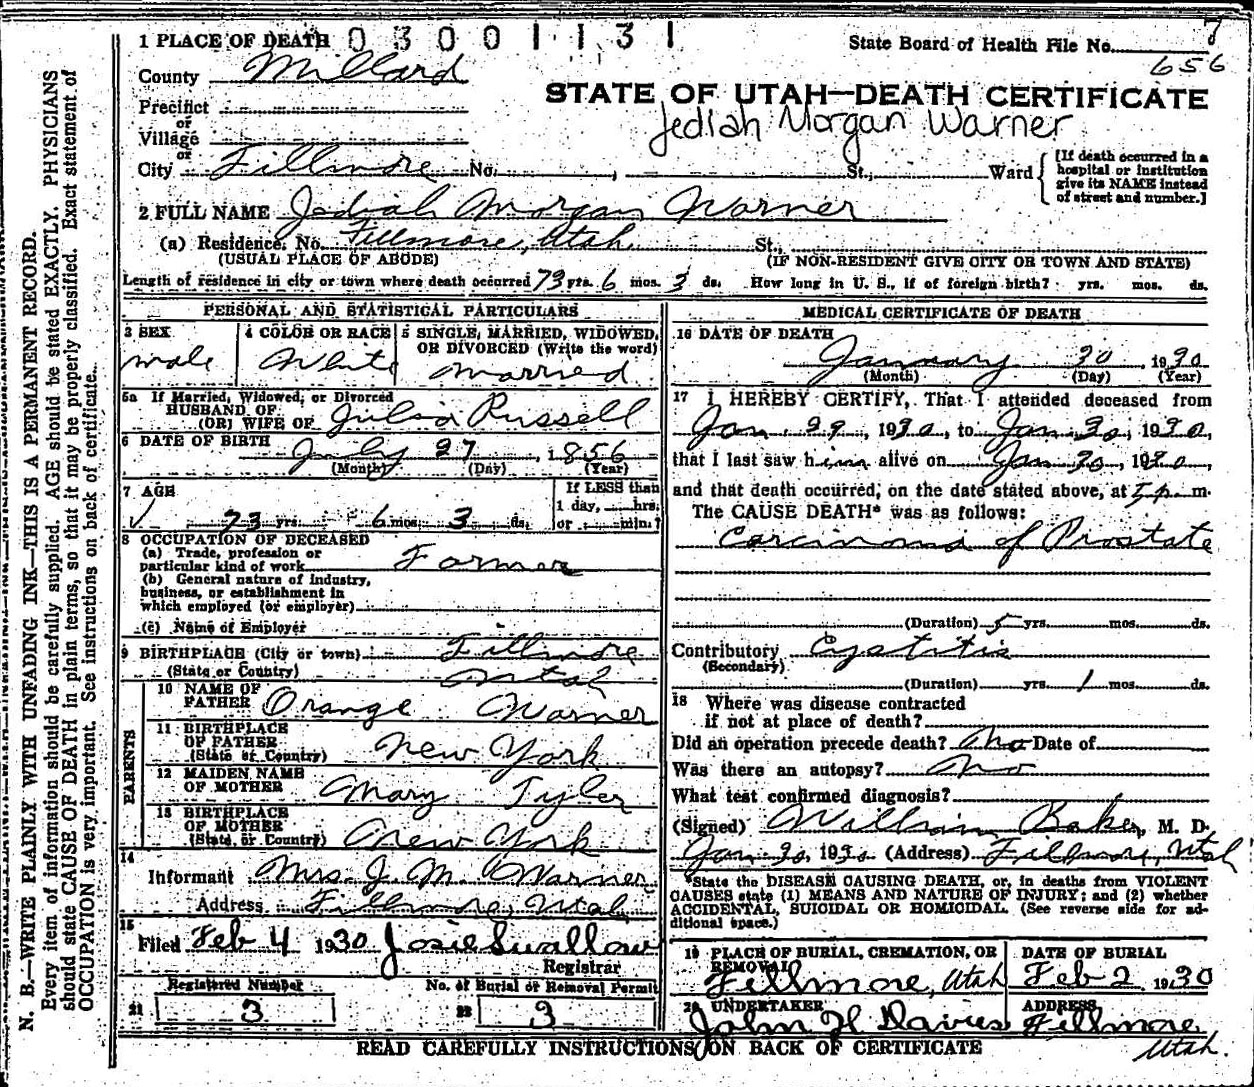 03001131
1 PLACE OF DEATH
State Board of Health File No. 7
656
County Millard
STATE OF UTAH—DEATH CERTIFICATE
Jediah Morgan Warner
Precinct
or
Village
or
City Fillmore No. , St., Ward
[If death occurred in a
hospital or institution
give its NAME instead
of street and number.]
2 FULL NAME Jediah Morgan Warner
(a) Residence. No. Fillmore, Utah. St.,
(USUAL PLACE OF ABODE) (IF NON-RESIDENT GIVE CITY OR TOWN AND STATE)
Length of residence in city or town where death occurred 73 yrs. 6 mos. 3 ds. How long in U. S., if of foreign birth? yrs. mos. ds.
PERSONAL AND STATISTICAL PARTICULARS
3 SEX
male
4 COLOR OR RACE
White
5 SINGLE, MARRIED, WIDOWED,
OR DIVORCED (Write the word)
married
5a If Married, Widowed, or Divorced
HUSBAND OF
(OR) WIFE OF Julia Russell
6 DATE OF BIRTH July 27, 1856
(Month) (Day) (Year)
7 AGE
73 yrs. 6 mos. 3 ds.
If LESS than
1 day, hrs.
or min.?
8 OCCUPATION OF DECEASED
(a) Trade, profession or
particular kind of work Farmer
(b) General nature of industry,
business, or establishment in
which employed (or employer)
(c) Name of Employer
9 BIRTHPLACE (City or town) Fillmore
(State or Country) Utah
PARENTS
10 NAME OF
FATHER Orange Warner
11 BIRTHPLACE
OF FATHER
(State or Country) New York
12 MAIDEN NAME
OF MOTHER Mary Tyler
13 BIRTHPLACE
OF MOTHER
(State or Country) New York
14
Informant Mrs. J. M. Warner
Address Fillmore, Utah
15
Filed Feb 4 1930 Josie Swallow
Registrar
Registered Number
21 3
No. of Burial or Removal Permit
22 3
MEDICAL CERTIFICATE OF DEATH
16 DATE OF DEATH
January 30, 1930
(Month) (Day) (Year)
17 I HEREBY CERTIFY, That I attended deceased from
Jan. 29, 1930, to Jan. 30, 1930,
that I last saw him alive on Jan 30, 1930,
and that death occurred, on the date stated above, at 5 p. m.
The CAUSE DEATH* was as follows:
Carcinoma of Prostate
(Duration) 5 yrs. mos. ds.
Contributory Cystitis
(Secondary)
(Duration) yrs. 1 mos. ds.
18 Where was disease contracted
if not at place of death?
Did an operation precede death? no Date of
Was there an autopsy? no
What test confirmed diagnosis?
(Signed) William Baker, M. D.
Jan 30, 1930 (Address) Fillmore, Utah
*State the DISEASE CAUSING DEATH, or, in deaths from VIOLENT
CAUSES state (1) MEANS AND NATURE OF INJURY; and (2) whether
ACCIDENTAL, SUICIDAL OR HOMICIDAL. (See reverse side for ad-
ditional space.)
19 PLACE OF BURIAL, CREMATION, OR
REMOVAL
Fillmore, Utah
DATE OF BURIAL
Feb 2 1930
20 UNDERTAKER
John H Davies
ADDRESS
Fillmore
Utah.
READ CAREFULLY INSTRUCTIONS ON BACK OF CERTIFICATE
N. B.—WRITE PLAINLY WITH UNFADING INK—THIS IS A PERMANENT RECORD.
Every item of information should be carefully supplied. AGE should be stated EXACTLY. PHYSICIANS
should state CAUSE OF DEATH in plain terms, so that it may be properly classified. Exact statement of
OCCUPATION is very important. See instructions on back of certificate.